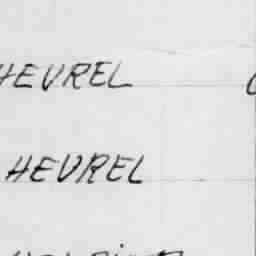 HEVREL
HEVREL